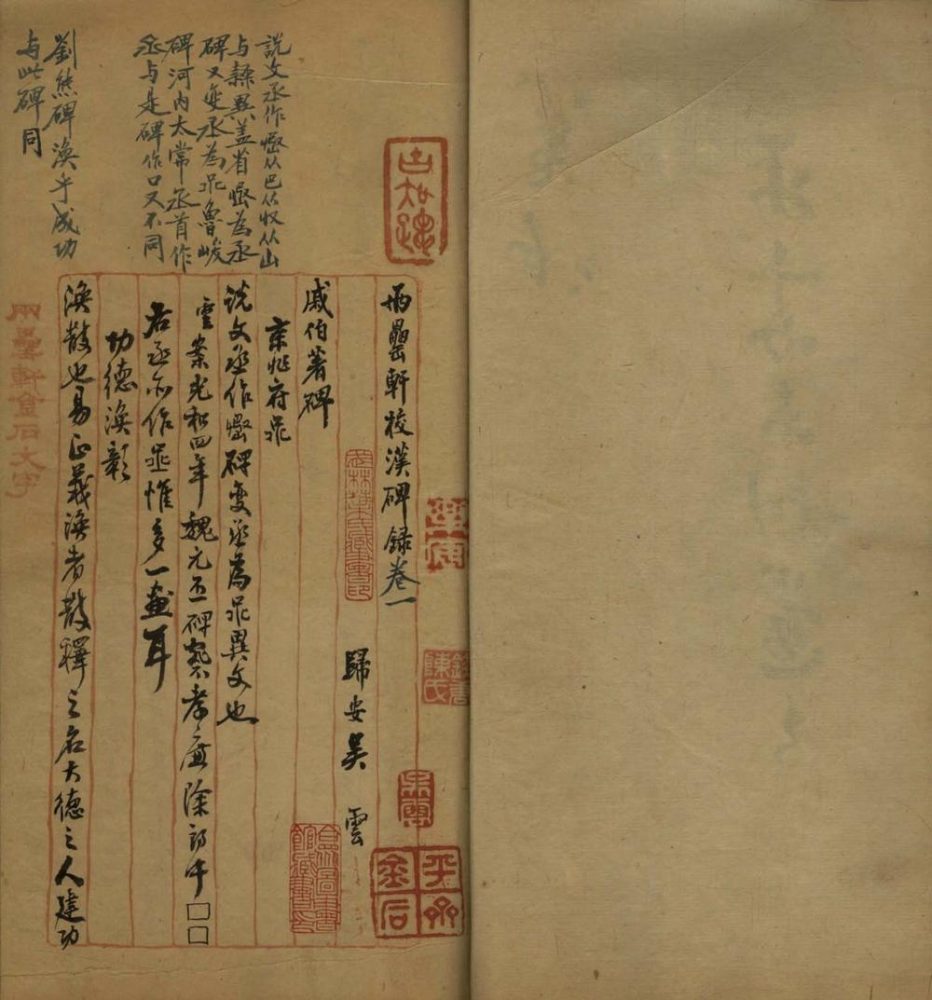 兩罍軒校漢碑錄卷一
歸安吳 雲
戚伯著碑
京兆府丞
説文丞作
碑變丞為
異文也
雲案光和四年魏元丕碑
孝廉除郎中□□
右丞亦作
惟多一畫耳
功德渙彰
渙散也易正義渙者散釋之名大德之人建功
説文丞作
从
从山
与隸異蓋省
為丞
碑又變丞為
魯峻
碑河内太常丞首作
与是碑作
又不同
劉熊碑渙乎成功
与此碑同
兩罍軒金石文字
平齋
金石